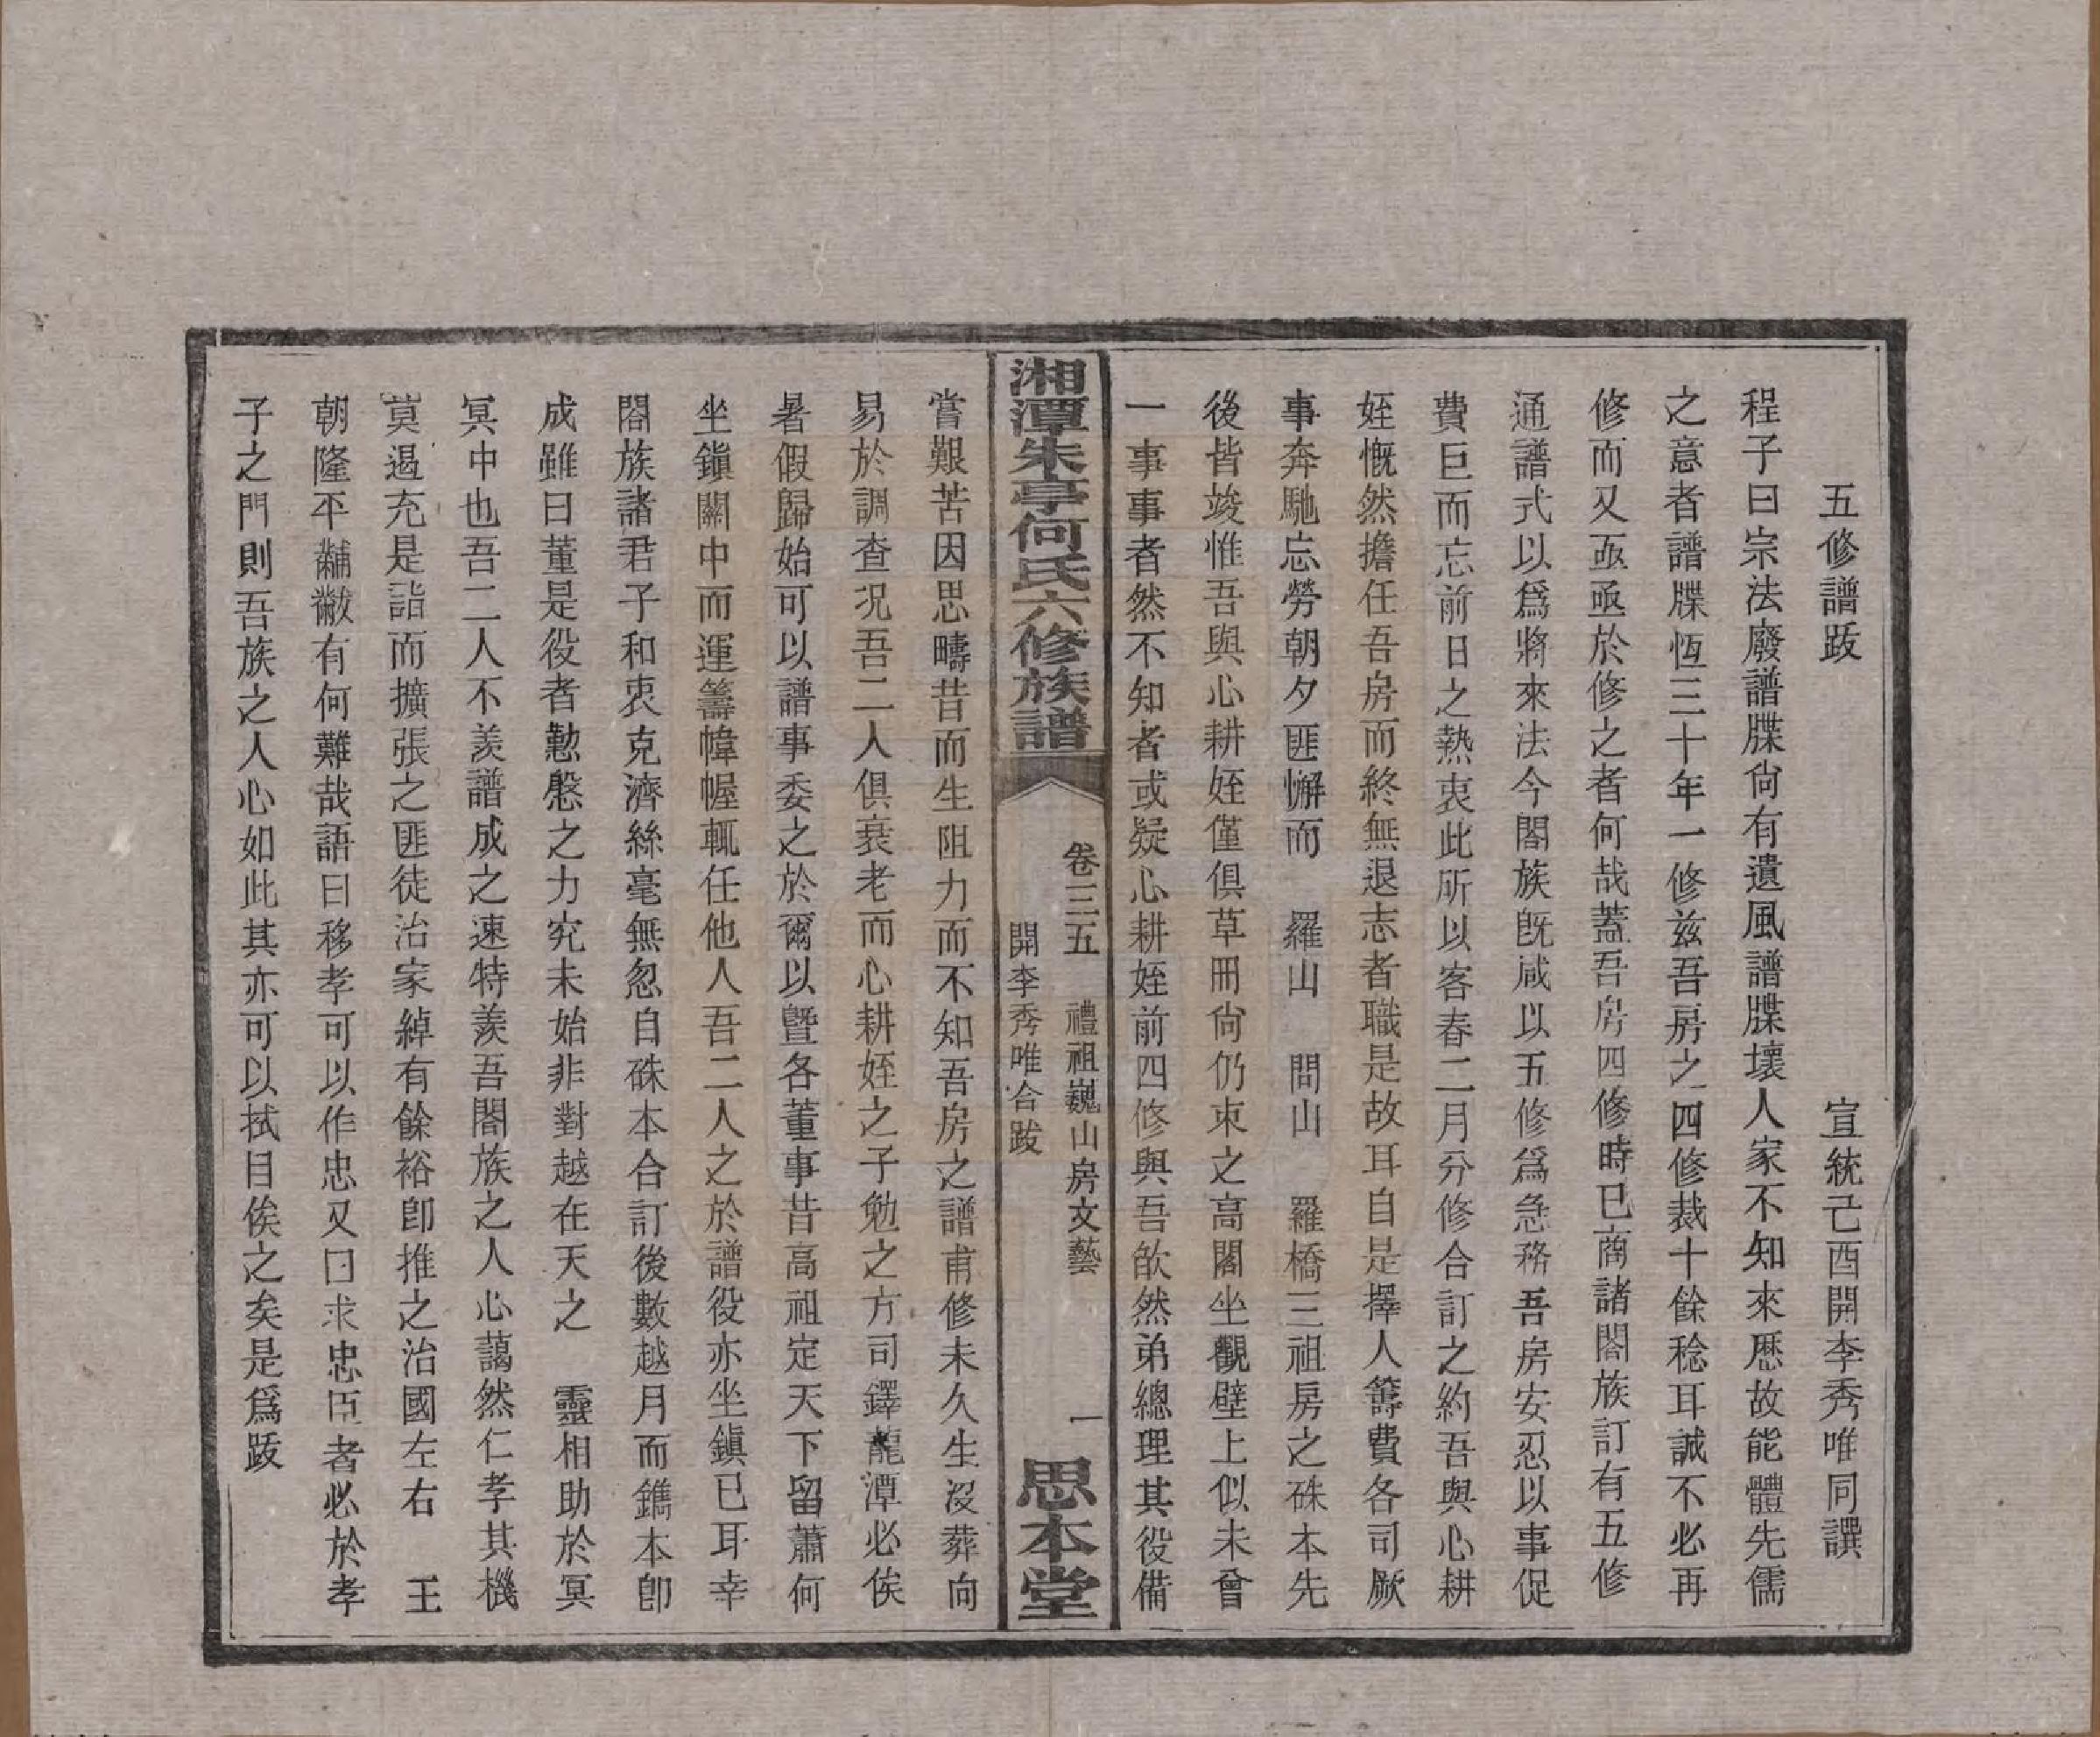 五修譜跋　宣統己酉開李秀唯同譔
程子曰宗法廢譜牒尙有遺風譜牒壞人家不知來歷故能體先儒
之意者譜牒恆三十年一修兹吾房之四修裁十餘稔耳誠不必再
修而又亟亟於修之者何哉蓋吾房四修時已商諸閤族訂有五修
通譜式以爲將來法今閤族旣咸以五修爲急務吾房安忍以事促
費巨而忘前日之熱衷此所以客春二月分修合訂之約吾與心耕
姪慨然擔任吾房而終無退志者職是故耳自是擇人籌費各司厥
事奔馳忘勞朝夕匪懈而　羅山　問山　羅橋三祖房之硃本先
後皆竣惟吾與心耕姪僅俱草冊尙仍束之高閣坐觀壁上似未曾
一事事者然不知者或疑心耕姪前四修與吾歆然弟總理其役備
湘潭朱亭何氏六修族譜
卷三五　禮祖巍山房文藝　一
開李秀唯合跋
思本堂
嘗艱苦因思疇昔而生阻力而不知吾房之譜甫修未久生沒葬向
易於調查况吾二人俱衰老而心耕姪之子勉之方司鐸龍潭必俟
暑假歸始可以譜事委之於爾以曁各董事昔高祖定天下留蕭何
坐鎭關中而運籌幃幄輒任他人吾二人之於譜役亦坐鎭已耳幸
閤族諸君子和衷克濟絲毫無忽自硃本合訂後數越月而鐫本卽
成雖曰董是役者懃慇之力究未始非對越在天之　靈相助於冥
冥中也吾二人不羨譜成之速特羨吾閤族之人心藹然仁孝其機
莫遏充是詣而擴張之匪徒治家綽有餘裕卽推之治國左右　王
朝隆平黼黻有何難哉語曰移孝可以作忠又曰求忠臣者必於孝
子之門則吾族之人心如此其亦可以拭目俟之矣是爲跋